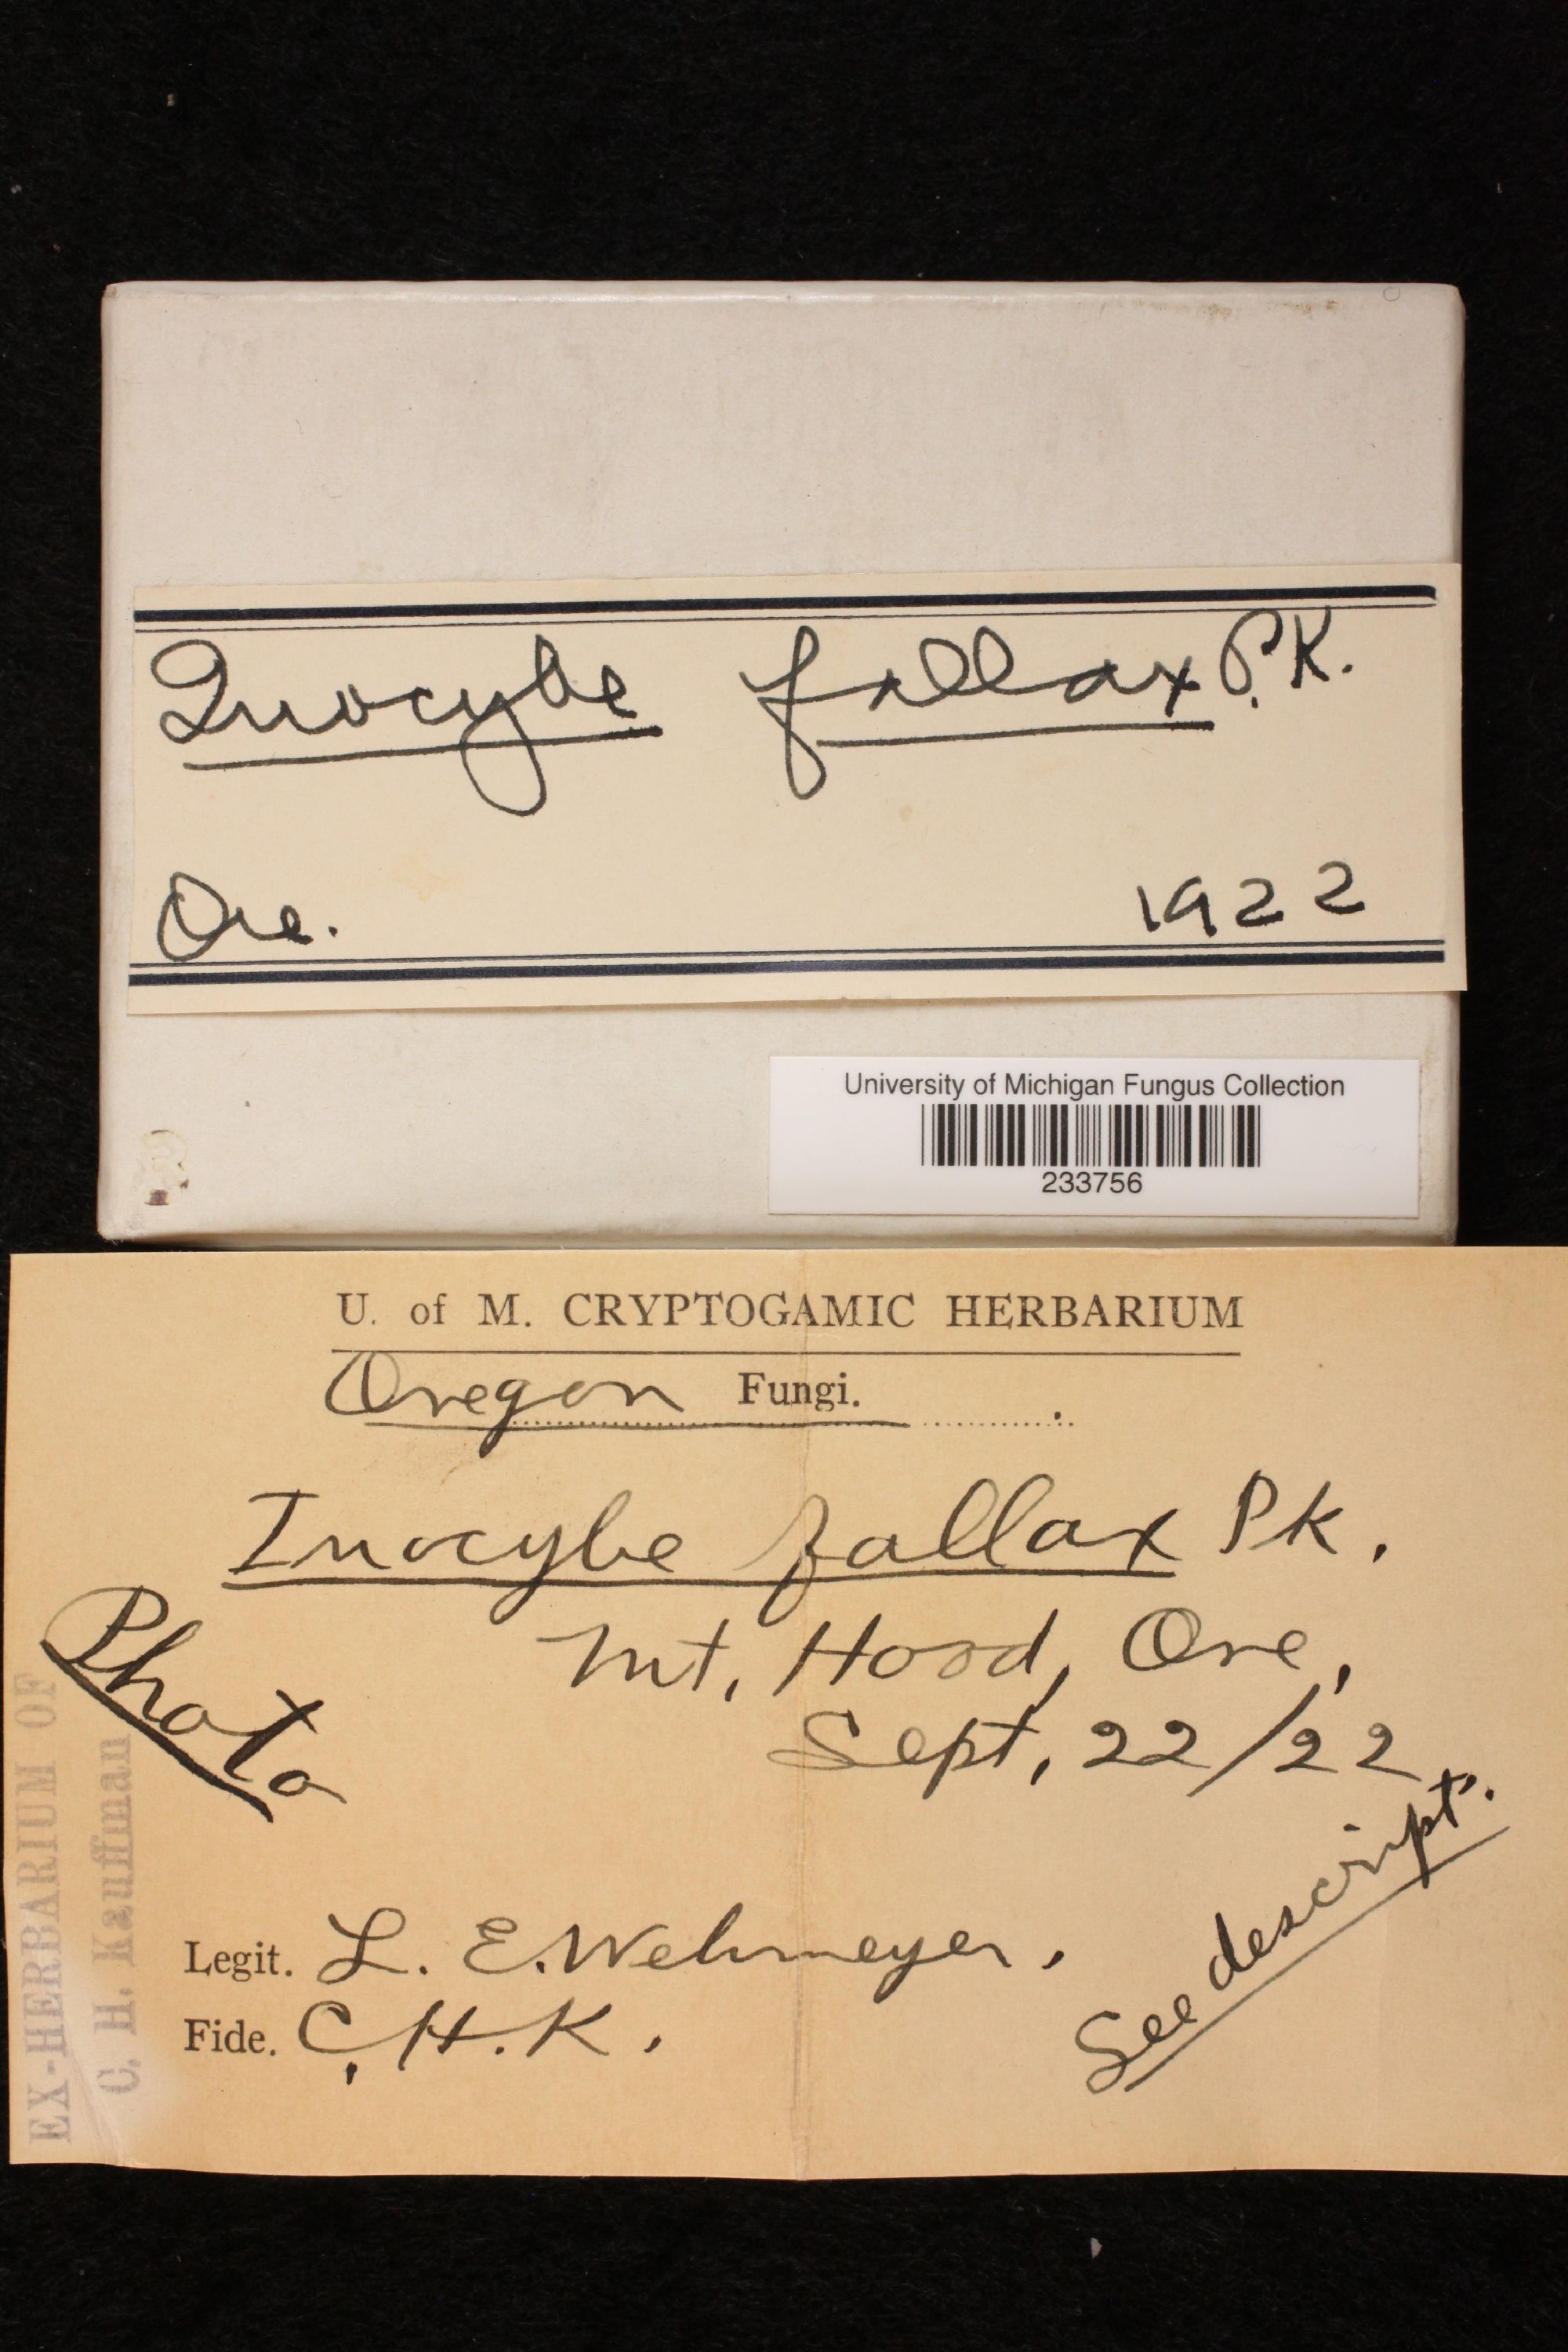 Inocybe fallax P.K.
Ore. 1922
University of Michigan Fungus Collection
233756
U. of M. CRYPTOGAMIC HERBARIUM
Oregon Fungi.
Inocybe fallax Pk.
Photo
Mt. Hood, Ore.
Sept. 22/22
See descript.
Legit. L. E. Wehmeyer.
Fide. C. H. K.
EX-HERBARIUM OF
C. H. Kauffman